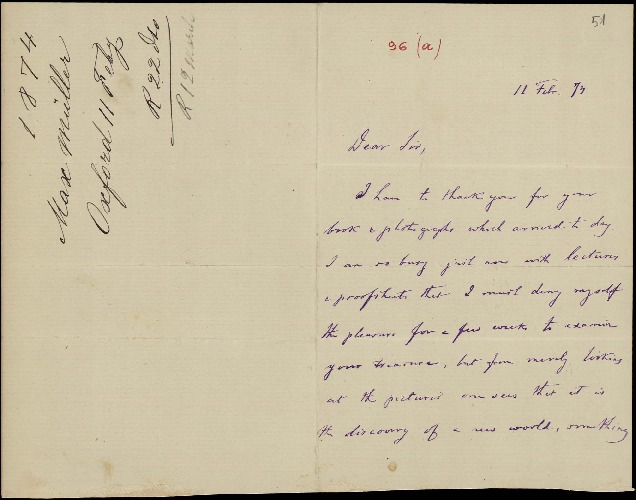 1874
Max Müller
Oxford 11 Feby
R 22 do
R 12 march
51
96 (a)
11 Febr. 74
Dear Sir,
I have to thank you for your
book & photographs which arrived to day.
I am so busy just now with lectures
& proofsheets that I must deny myself
the pleasure for a few weeks to examine
your treasure, but from merely looking
at the pictures one sees that it is
the discovery of a new world, something